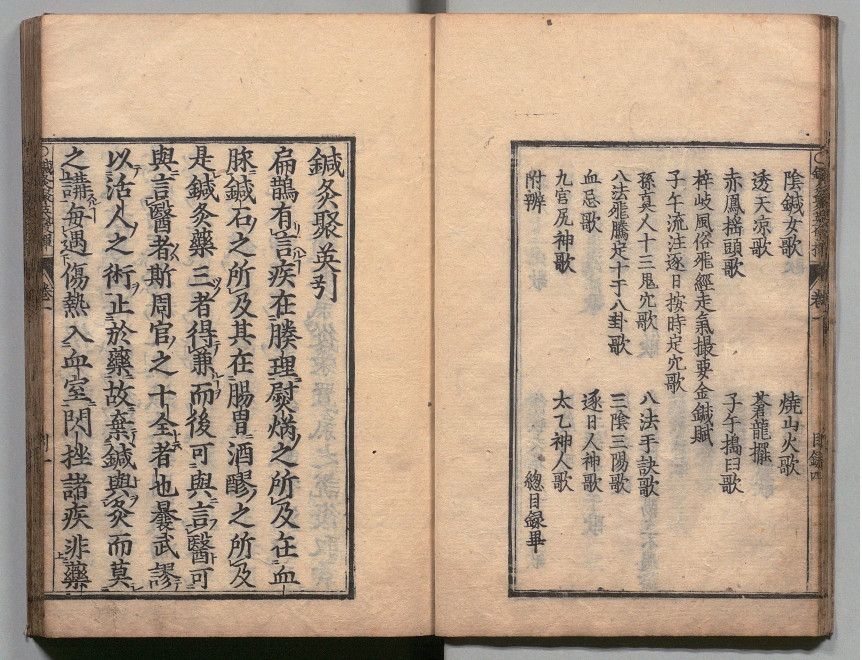 卷一 目録四
陰鍼女歌 燒山火歌
透天凉歌 蒼龍擺
赤鳳摇頭歌 子午搗臼歌
梓岐風俗飛經走氣撮要金鍼賦
子午流注逐日按時定穴歌
孫真人十三鬼穴歌 八法手訣歌
八法飛騰定十干八卦歌 三陰三陽歌
血忌歌 逐日人神歌
九宮尻神歌 太乙神人歌
附辨 總目録畢
鍼灸聚英引
扁鵲有言疾在腠理熨焫之所及在血
脉鍼石之所及其在腸胃酒醪之所及
是鍼灸藥三者得兼而後可與言醫可
與言醫者斯周官之十全者也曩武謬
以活人之術止於藥故棄鍼與灸而莫
之講每遇傷熱入血室閃挫諸疾非藥
卷一